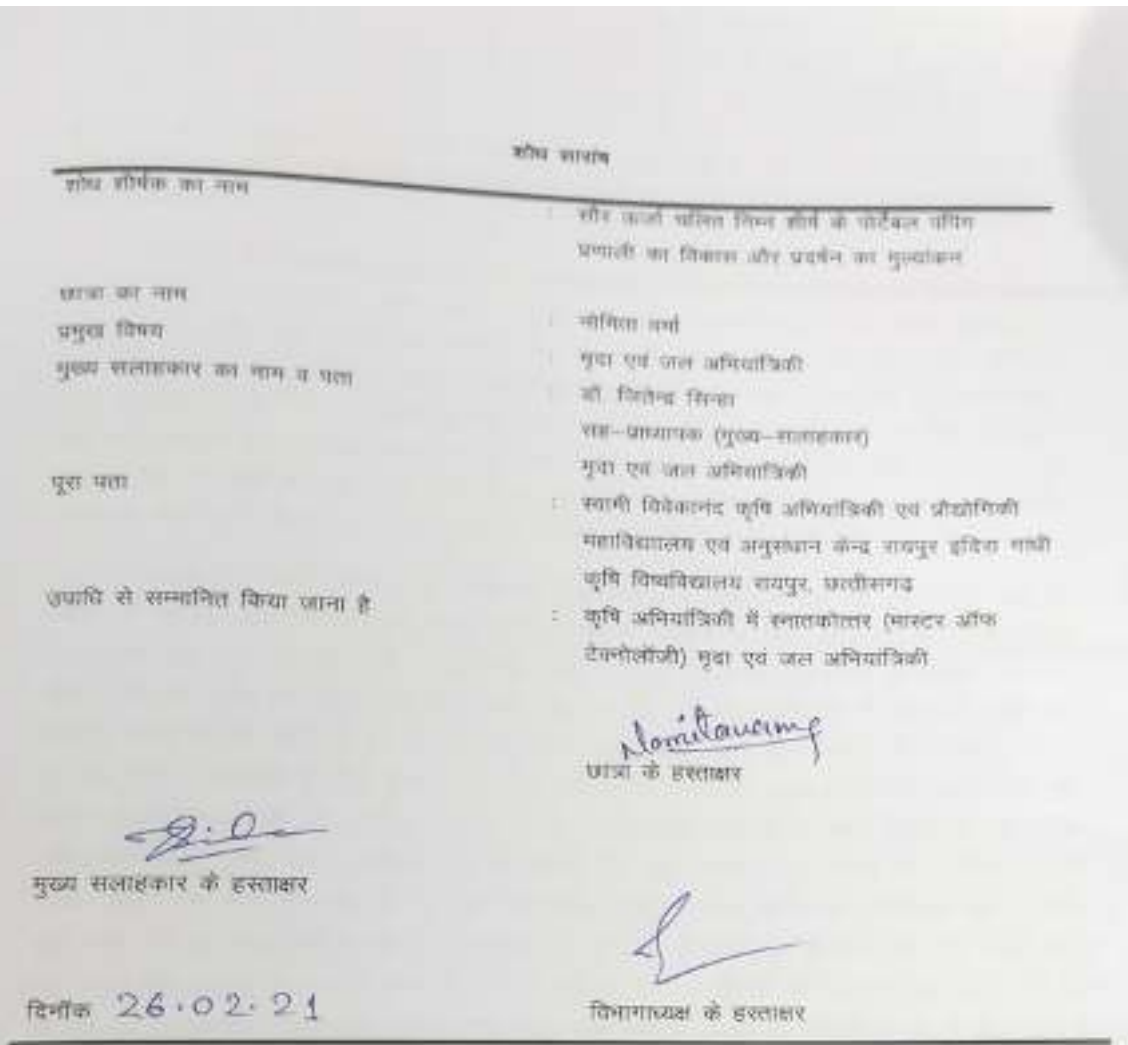 शोध सारांष
शोध शीर्षक का नाम : सौर ऊर्जा चलित निम्न शीर्ष के पोर्टेबल पंपिंग
प्रणाली का विकास और प्रदर्षन का मुल्यांकन
छात्रा का नाम : नोमिता वर्मा
प्रमुख विषय : मृदा एवं जल अभियांत्रिकी
मुख्य सलाहकार का नाम व पता : डॉ. जितेन्द्र सिन्हा
सह–प्राध्यापक (मुख्य–सलाहकार)
मृदा एवं जल अभियांत्रिकी
पूरा पता : स्वामी विवेकानंद कृषि अभियांत्रिकी एवं प्रौद्योगिकी
महाविद्यालय एवं अनुसंधान केन्द्र रायपुर इंदिरा गांधी
कृषि विष्वविद्यालय रायपुर, छत्तीसगढ़
उपाधि से सम्मानित किया जाना है : कृषि अभियांत्रिकी में स्नातकोत्तर (मास्टर ऑफ
टेक्नोलॉजी) मृदा एवं जल अभियांत्रिकी
छात्रा के हस्ताक्षर
मुख्य सलाहकार के हस्ताक्षर
दिनाँक 26.02.21
विभागाध्यक्ष के हस्ताक्षर